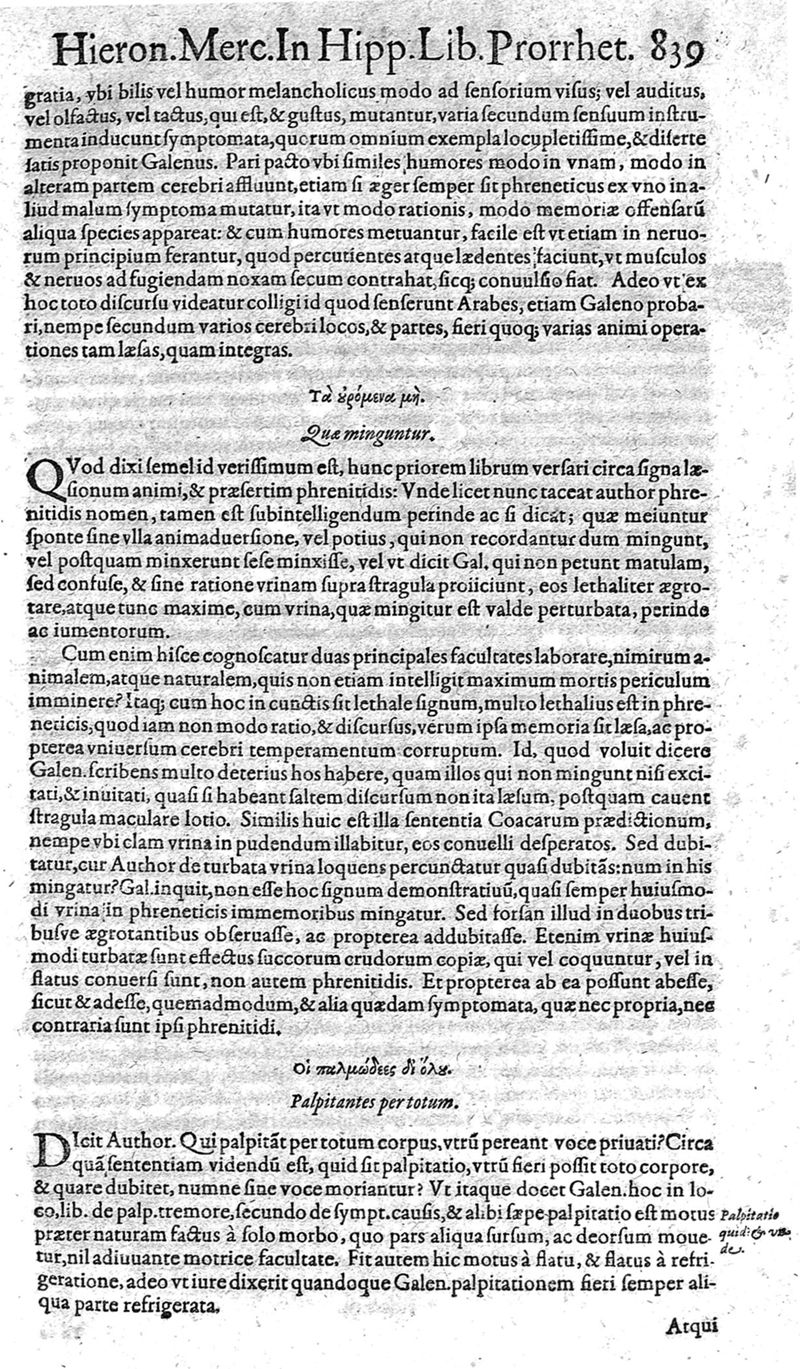 Hieron.Merc.In Hipp.Lib.Prorrhet. 839
gratia, vbi bilis vel humor melancholicus modo ad ſenſorium viſus; vel auditus,
vel olfactus, vel tactus, qui eſt, & guſtus, mutantur, varia ſecundum ſenſuum inſtru-
menta inducunt ſymptomata, quorum omnium exempla locupletiſſime, & diſerte
ſatis proponit Galenus. Pari pacto vbi ſimiles humores modo in vnam, modo in
alteram partem cerebri affluunt, etiam ſi æger ſemper ſit phreneticus ex vno in a-
liud malum ſymptoma mutatur, ita vt modo rationis, modo memoriæ offenſarū
aliqua ſpecies appareat: & cum humores metuantur, facile eſt vt etiam in neruo-
rum principium ferantur, quod percutientes atque lædentes faciunt, vt muſculos
& neruos ad fugiendam noxam ſecum contrahat, ſicq; conuulſio fiat. Adeo vt ex
hoc toto diſcurſu videatur colligi id quod ſenſerunt Arabes, etiam Galeno proba-
ri, nempe ſecundum varios cerebri locos, & partes, fieri quoq; varias animi opera-
tiones tam læſas, quam integras.
Τὰ ȣ̓ρόμενα μὴ.
Quæ minguntur.
QVod dixi ſemel id veriſſimum eſt, hunc priorem librum verſari circa ſigna læ-
ſionum animi, & præſertim phrenitidis: Vnde licet nunc taceat author phre-
nitidis nomen, tamen eſt ſubintelligendum perinde ac ſi dicat; quæ meiuntur
ſponte ſine vlla animaduerſione, vel potius, qui non recordantur dum mingunt,
vel poſtquam minxerunt ſeſe minxiſſe, vel vt dicit Gal. qui non petunt matulam,
ſed confuſe, & ſine ratione vrinam ſupra ſtragula proiiciunt, eos lethaliter ægro-
tare, atque tunc maxime, cum vrina, quæ mingitur eſt valde perturbata, perinde
ac iumentorum.
Cum enim hiſce cognoſcatur duas principales facultates laborare, nimirum a-
nimalem, atque naturalem, quis non etiam intelligit maximum mortis periculum
imminere? Itaq; cum hoc in cunctis ſit lethale ſignum, multo lethalius eſt in phre-
neticis, quod iam non modo ratio, & diſcurſus, verum ipſa memoria ſit læſa, ac pro-
pterea vniuerſum cerebri temperamentum corruptum. Id, quod voluit dicere
Galen. ſcribens multo deterius hos habere, quam illos qui non mingunt niſi exci-
tati, & inuitati, quaſi ſi habeant ſaltem diſcurſum non ita læſum, poſtquam cauent
ſtragula maculare lotio. Similis huic eſt illa ſententia Coacarum prædictionum,
nempe vbi clam vrina in pudendum illabitur, eos conuelli deſperatos. Sed dubi-
tatur, cur Author de turbata vrina loquens percunctatur quaſi dubitās: num in his
mingatur? Gal. inquit, non eſſe hoc ſignum demonſtratiuū, quaſi ſemper huiuſmo-
di vrina in phreneticis immemoribus mingatur. Sed forſan illud in duobus tri-
buſve ægrotantibus obſeruaſſe, ac propterea addubitaſſe. Etenim vrinæ huiuſ-
modi turbatæ ſunt effectus ſuccorum crudorum copiæ, qui vel coquuntur, vel in
flatus conuerſi ſunt, non autem phrenitidis. Et propterea ab ea poſſunt abeſſe,
ſicut & adeſſe, quemadmodum, & alia quædam ſymptomata, quæ nec propria, nec
contraria ſunt ipſi phrenitidi.
Οἱ παλμώδεες δι ὅλȣ.
Palpitantes per totum.
DIcit Author. Qui palpitāt per totum corpus, vtrū pereant voce priuati? Circa
quā ſententiam videndū eſt, quid ſit palpitatio, vtrū fieri poſſit toto corpore,
& quare dubitet, numne ſine voce moriantur? Vt itaque docet Galen. hoc in lo-
co, lib. de palp. tremore, ſecundo de ſympt. cauſis, & alibi ſæpe palpitatio eſt motus
præter naturam factus à ſolo morbo, quo pars aliqua ſurſum, ac deorſum moue-
tur, nil adiuuante motrice facultate. Fit autem hic motus à flatu, & flatus à refri-
geratione, adeo vt iure dixerit quandoque Galen. palpitationem fieri ſemper ali-
qua parte refrigerata.
Palpitatio
quid: & vn-
de.
Atqui